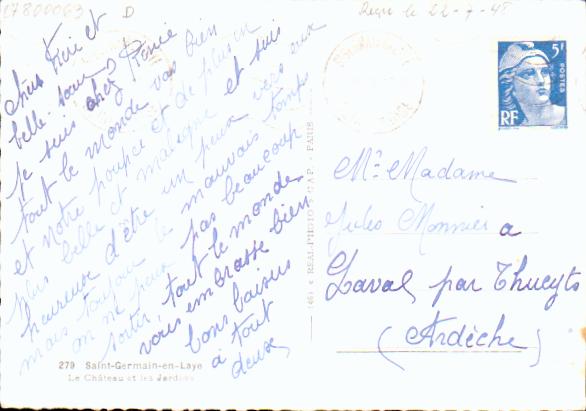 27800063 D
Reçu le 22-7-45
chers Frère et
belle soeur
je suis chez Renée
tout le monde vas bien
et notre poupée et de plus en
plus belle et maligne et suis
heureuse d'être un peux vers eux
mais toujour le mauvais temps
on ne peux pas beaucoup
sortir, tout le monde
vous embrasse bien
bons baisers
à tout
deux
279 Saint-Germain-en-Laye
Le Château et les Jardins
REAL-PHOTO C.A.P. PARIS
5F
POSTES
RF
Mr Madame
Jules Monnier a
Laval par Thueyts
(Ardèche)